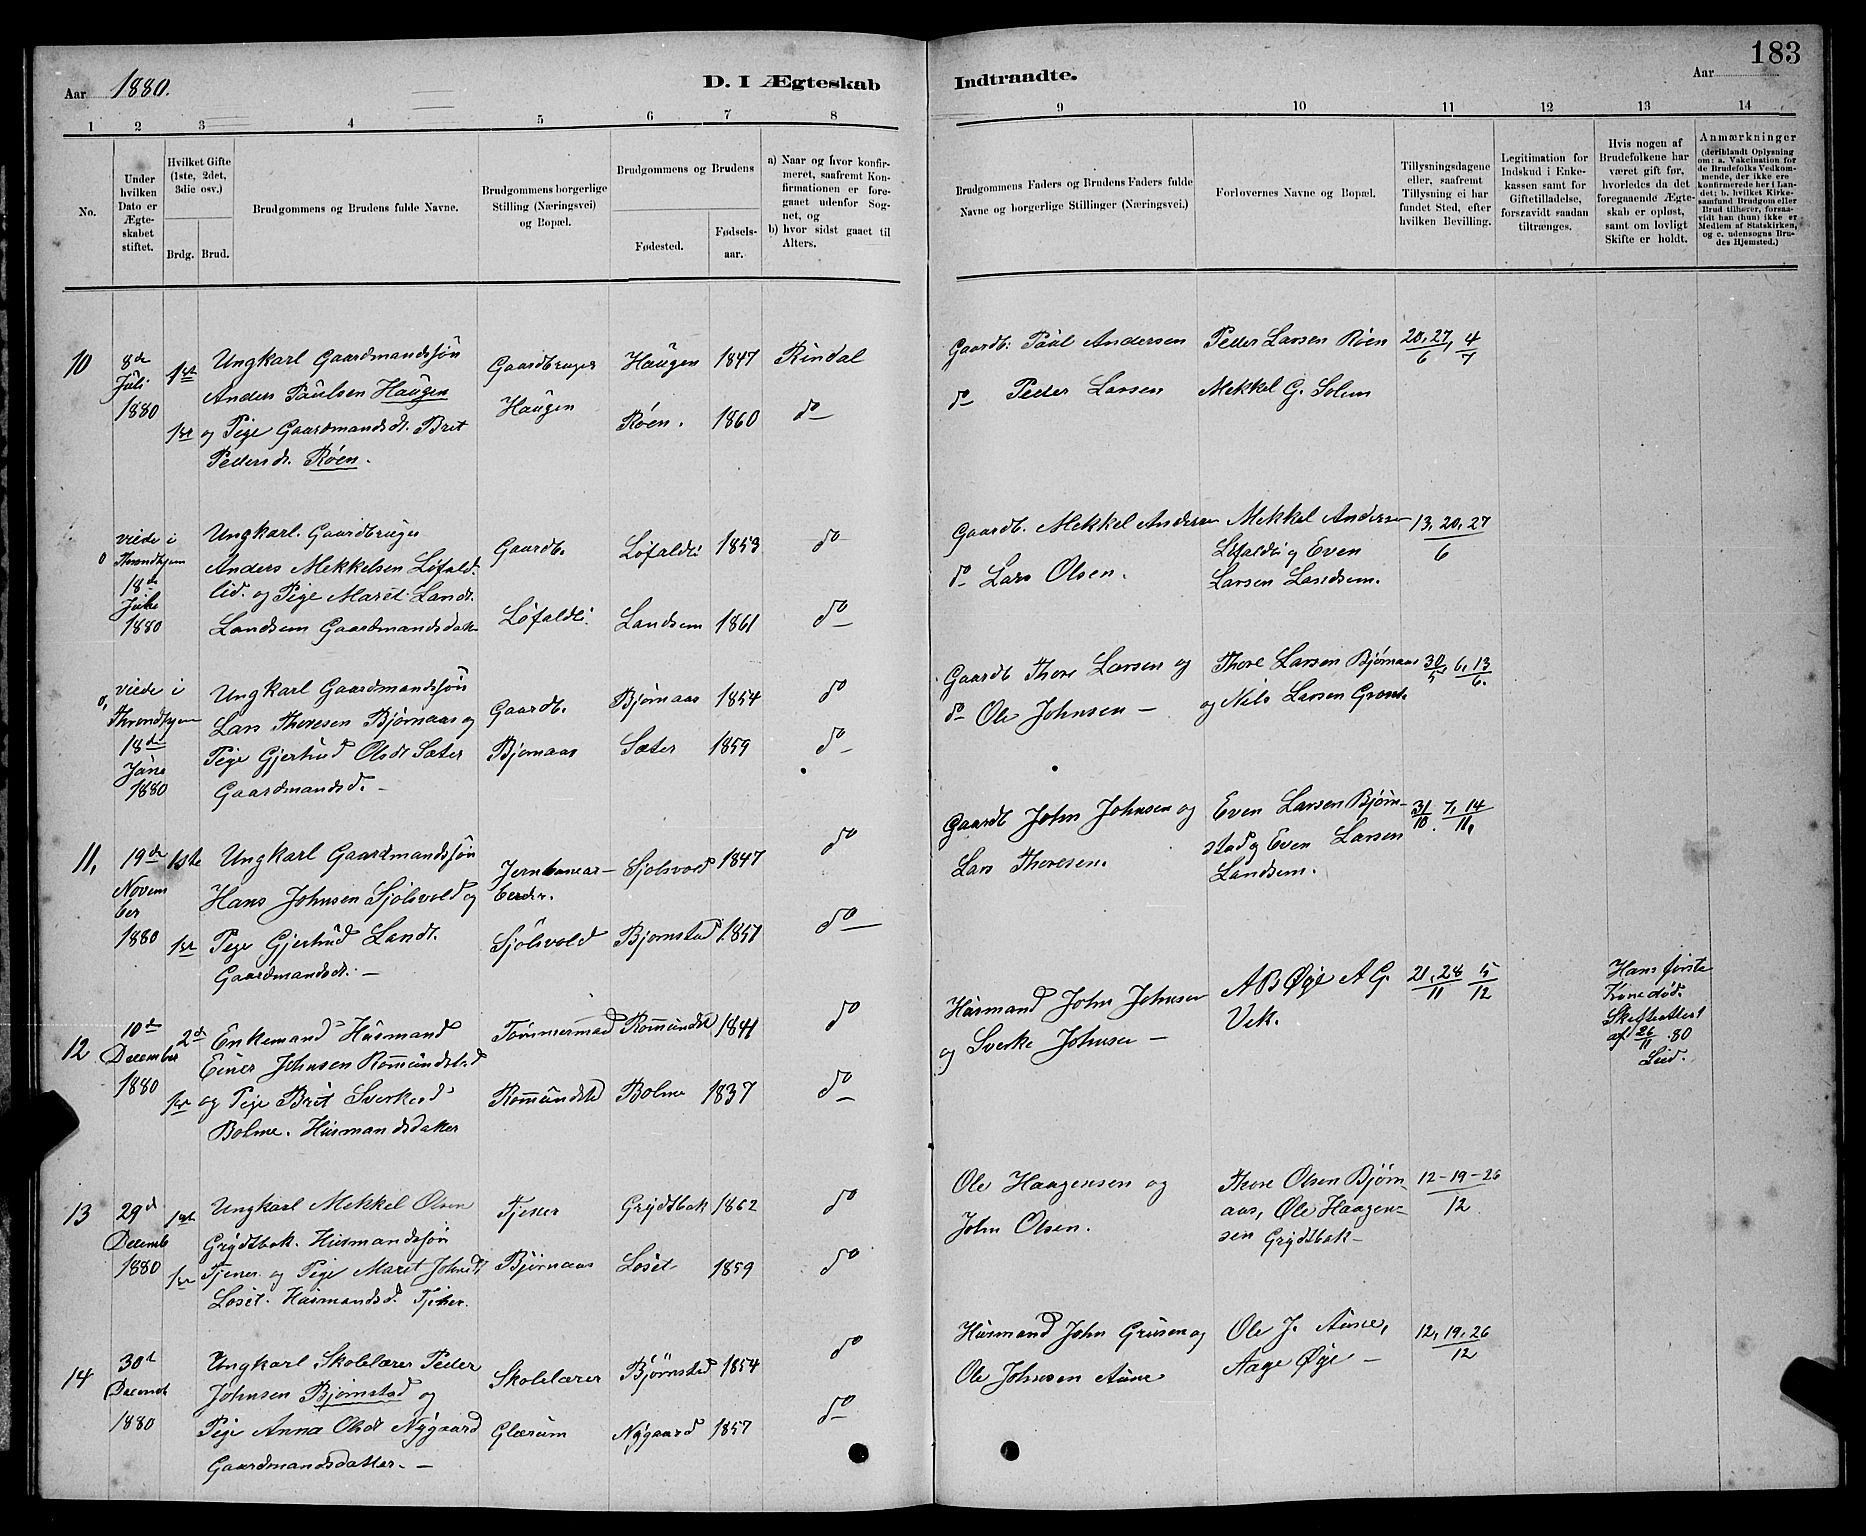 183
Aar 1880.
D. I Ægteskab
Indtraadte.
Aar
1 2 3 4 5 6 7 8
9 10 11 12 13 14
No.
Under hvilken Dato er Ægteskabet stiftet.
Hvilket Gifte (1ste, 2det, 3die osv.)
Brdg. Brud.
Brudgommens og Brudens fulde Navne.
Brudgommens borgerlige Stilling (Næringsvei) og Bopæl.
Brudgommens og Brudens
Fødested.
Fødselsaar.
a) Naar og hvor konfirmeret, saafremt Konfirmationen er foregaaet udenfor Sognet, og
b) hvor sidst gaaet til Alters.
Brudgommens Faders og Brudens Faders fulde Navne og borgerlige Stillinger (Næringsvei.)
Forlovernes Navne og Bopæl.
Tillysningsdagene eller, saafremt Tillysning ei har fundet Sted, efter hvilken Bevilling.
Legitimation for Indskud i Enkekassen samt for Giftetilladelse, forsaavidt saadan tiltrænges.
Hvis nogen af Brudefolkene har været gift før, hvorledes da det foregaaende Ægteskab er opløst, samt om lovligt Skifte er holdt.
Anmærkninger
(deriblandt Oplysning om: a. Vakcination for de Brudefolks Vedkommende, der ikke ere konfirmerede her i Landet; b. hvilket Kirkesamfund Brudgom eller Brud tilhører, forsaavidt han (hun) ikke er Medlem af Statskirken, og c. udensogns Brudes Hjemsted.)
10 8de Juli 1880 1ste Ungkarl Gaardmandssøn
Anders Paulsen Haugen
1ste og Pige Gaardmandsdt. Brit
Pedersdt. Røen.
Gaardbruger Haugen
Haugen 1847 Rindal
Røen. 1860 do
Gaardb. Paul Andersen
do Peder Larsen
Peder Larsen Røen
Mekkel G. Solem
20, 27, 4
6 7
0 viede i Throndhjem 18de 1880
Ungkarl. Gaardbruger
Anders Mekkelsen Løfald
lid. og Pige Marit Landt.
Landsem Gaardmandsdatter
Gaardb. Løfaldli
Løfaldli 1853 do
Landsem 1861 do
Gaardb. Mekkel Andersen
do Lars Olsen.
Mekkel Andersen
Løfaldli og Even
Larsen Landsem.
13, 20, 27
6
0, viede i Throndhjem 18de 1880
Ungkarl Gaardmandssøn
Lars Thoresen Bjørnaas og
Pige Gjertrud Olsdt Sæter
Gaardmandsd. –
Gaardb. Bjørnaas
Bjørnaas 1854 do
Sæter 1859 do
Gaardb Thore Larsen og
do Ole Johnsen –
Thore Larsen Bjørnaas
og Nils Larsen
30, 6, 13
5 6.
11, 19de November 1880 1ste Ungkarl Gaardmandssøn
Hans Johnsen Sjølsvold og
1ste Pige Gjertrud Landt.
Gaardmandsdt. –
Jernbanearbeider.
Sjølsvold
Sjølsvold 1847 do
Bjørnstad 1857 do
Gaardb John Johnsen og
Lars Thoresen.
Even Larsen Bjørn-
stad og Even Larsen
Landsem.
31, 7, 14
10. 11,
12 10de December 1880 2de Enkemand Husmand
Einer Johnsen Romundstad
1ste og Pige Brit Sverkesd
Bolme. Husmandsdatter
Tømmermand Romundstd
Romundstd 1841 do
Bolme 1837 do
Husmand John Johnsen
og Sverke Johnsen –
A B Øye A G.
Vik.
21, 28 5
11 12
Hans første
Kone død.
Skifteattest
af 26/11 80
13 29d Decemb 1880 1ste Ungkarl Mekkel Olsen
Grydtbak. Husmandssøn
1ste Tjener og Pige Marit Johnsdt,
Løset. Husmandsd. Tjener.
Tjener Bjørnaas
Grydtbak 1862 do
Løset 1859 do
Ole Haagensen og
John Olsen.
Thore Olsen Bjørn-
aas, Ole Haagen-
sen Grydtbak –
12 – 19 – 26
12
14 30d Decemb 1880
Ungkarl Skolelærer Peder
Johnsen Bjørnstad og
Pige Anna Olsdt Nygaard
Gaardmandsdatter. –
Skolelærer Glærum
Bjørnstad 1854 do
Nygaard 1857 do
Husmand John og
Ole Johnsen Aune
Ole J. Aune,
Aage Øye –
12, 19, 26
12